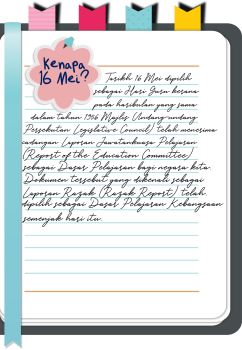 Kenapa
16 Mei?
Tarikh 16 Mei dipilih
sebagai Hari Guru kerana
pada haribulan yang sama
dalam tahun 1956 Majlis Undang-undang
Persekutan Legislative Council) telah menerima
cadangan Laporan Jawatankuasa Pelajaran
(Report of the Education Committee)
sebagai Dasar Pelajaran bagi negara kita.
Dokumen tersebut yang dikenali sebagai
Laporan Razak (Razak Report) telah
dipilih sebagai Dasar Pelajaran Kebangsaan
semenjak hari itu.